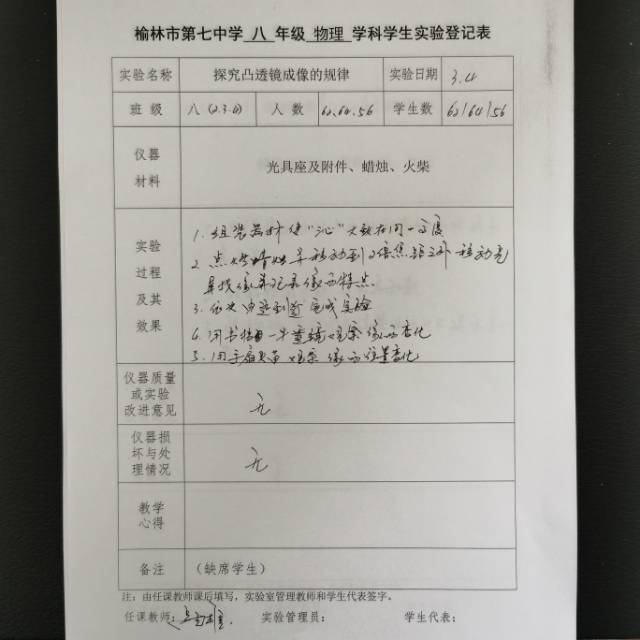 榆林市第七中学 八 年级 物理 学科学生实验登记表
实验名称 探究凸透镜成像的规律 实验日期 3.4
班级 八(2.3.6) 人数 62.64.56 学生数 62/64/56
仪器
材料
光具座及附件、蜡烛、火柴
实验
过程
及其
效果
1. 组装器材使“心”大致在同一高度
2. 点燃蜡烛并移动到2倍焦距之外 移动光
屏找像并记录像的特点
3. 依次由远到近完成实验
4. 用书挡一半透镜观察像的变化
5. 用手扇火苗观察像的位置变化
仪器质量
或实验
改进意见
无
仪器损
坏与处
理情况
无
教学
心得
备注 (缺席学生)
注:由任课教师课后填写,实验室管理教师和学生代表签字。
任课教师: 实验管理员: 学生代表: